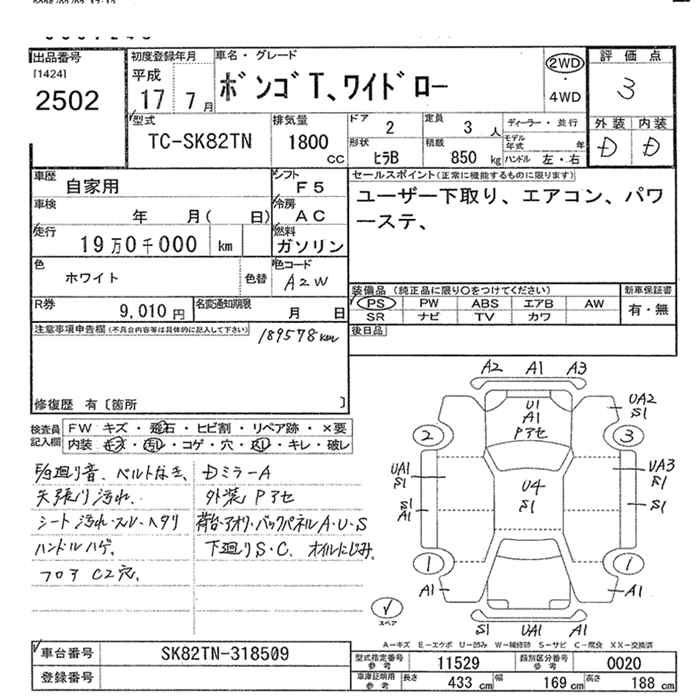 出品番号
[1424]
2502
初度登録年月
平成
17 7月
車名・グレード
ボンゴT、ワイドロー
2WD
・
4WD
評価点
3
型式
TC-SK82TN
排気量
1800
CC
ドア 2
定員 3 人
形状 ヒラB
積載 850 kg
ディーラー・並行
モデル年式 年
ハンドル 左・右
外装 内装
D D
車歴 自家用
シフト F5
車検 年 月( 日)
冷房 AC
走行 19万0千000 km
燃料 ガソリン
色 ホワイト 色替
色コード A2W
R券 9,010円
名変通知期限 月 日
セールスポイント(正常に機能するものに限ります)
ユーザー下取り、エアコン、パワ
ーステ、
装備品 (純正品に限り○をつけてください)
PS PW ABS エアB AW
SR ナビ TV カワ
新車保証書
有・無
後日品
注意事項申告欄(不具合内容等は具体的に記入して下さい)
189578km
修復歴 有〔箇所 〕
検査員
記入欄
FW キズ・飛石・ヒビ割・リペア跡・×要
内装 キズ・汚れ・コゲ・穴・スレ・キレ・破レ
廻り音、ベルトなき、
天張り汚れ、
シート汚れ・スレ・ヘタリ
ハンドルハゲ、
フロア C2穴、
DミラーA
外装Pアセ
荷台・アオリ・バックパネルA・U・S
下廻りS・C、オイルにじみ、
A2 A1 A3
U1
A1
Pアセ
UA2
S1
2 3
UA1
S1
U4
S1
UA3
S1
S1
A1
S1
1 1
A1 A1
S1 UA1 A1
スペア
A－キズ E－エクボ U－凹み W－補修跡 S－サビ C－腐食 XX－交換済
車台番号 SK82TN-318509
登録番号
型式指定番号
参考
11529
類別区分番号
参考
0020
車庫証明用
参考
長さ 433 cm
幅 169 cm
高さ 188 cm